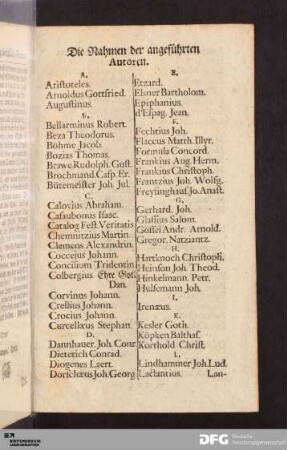 Die Nahmen der angeführten
Autoren.
A.
Aristoteles.
Arnoldus Gottfried.
Augustinus.
B.
Bellarminus Robert.
Beza Theodorus.
Böhme Jacob.
Bozius Thomas.
Brawe Rudolph. Gust.
Brochmand. Casp. Er.
Bütemeister Joh. Jul.
C.
Calovius Abraham.
Casaubonus Isaac.
Catalog Test. Veritatis
Chemnitzius Martin.
Clemens Alexandrin.
Coccejus Johann.
Concilium Tridentin.
Colbergius Ehre Got.
Dan.
Corvinus Johann.
Crellius Johann.
Crocius Johann.
Curcellæus Stephan.
D.
Dannhauer Joh. Conr.
Dieterich Conrad.
Diogenes Laert.
Dorschæus Joh. Georg
E.
Elsner Bartholom.
Epiphanius.
d'Espag. Jean.
F.
Fechtius Joh.
Flaccus Matth. Illyr.
Formula Concord.
Frankius Aug. Herm.
Frankius Christoph.
Frantzius Joh. Wolfg.
Freylinghaus. Jo. Anast.
G.
Gerhard. Joh.
Glassius Salom.
Gössel Andr. Arnold.
Gregor. Natzianz.
H.
Hartknoch Christoph.
Heinson Joh. Theod.
Hinkelmann Petr.
Hulsemann Joh.
I.
Irenæus.
K.
Kesler Goth.
Köpken Balthas.
Korthold Christ.
L.
Lindhammer Joh. Lud.
Lactantius.
Lan-
DFG